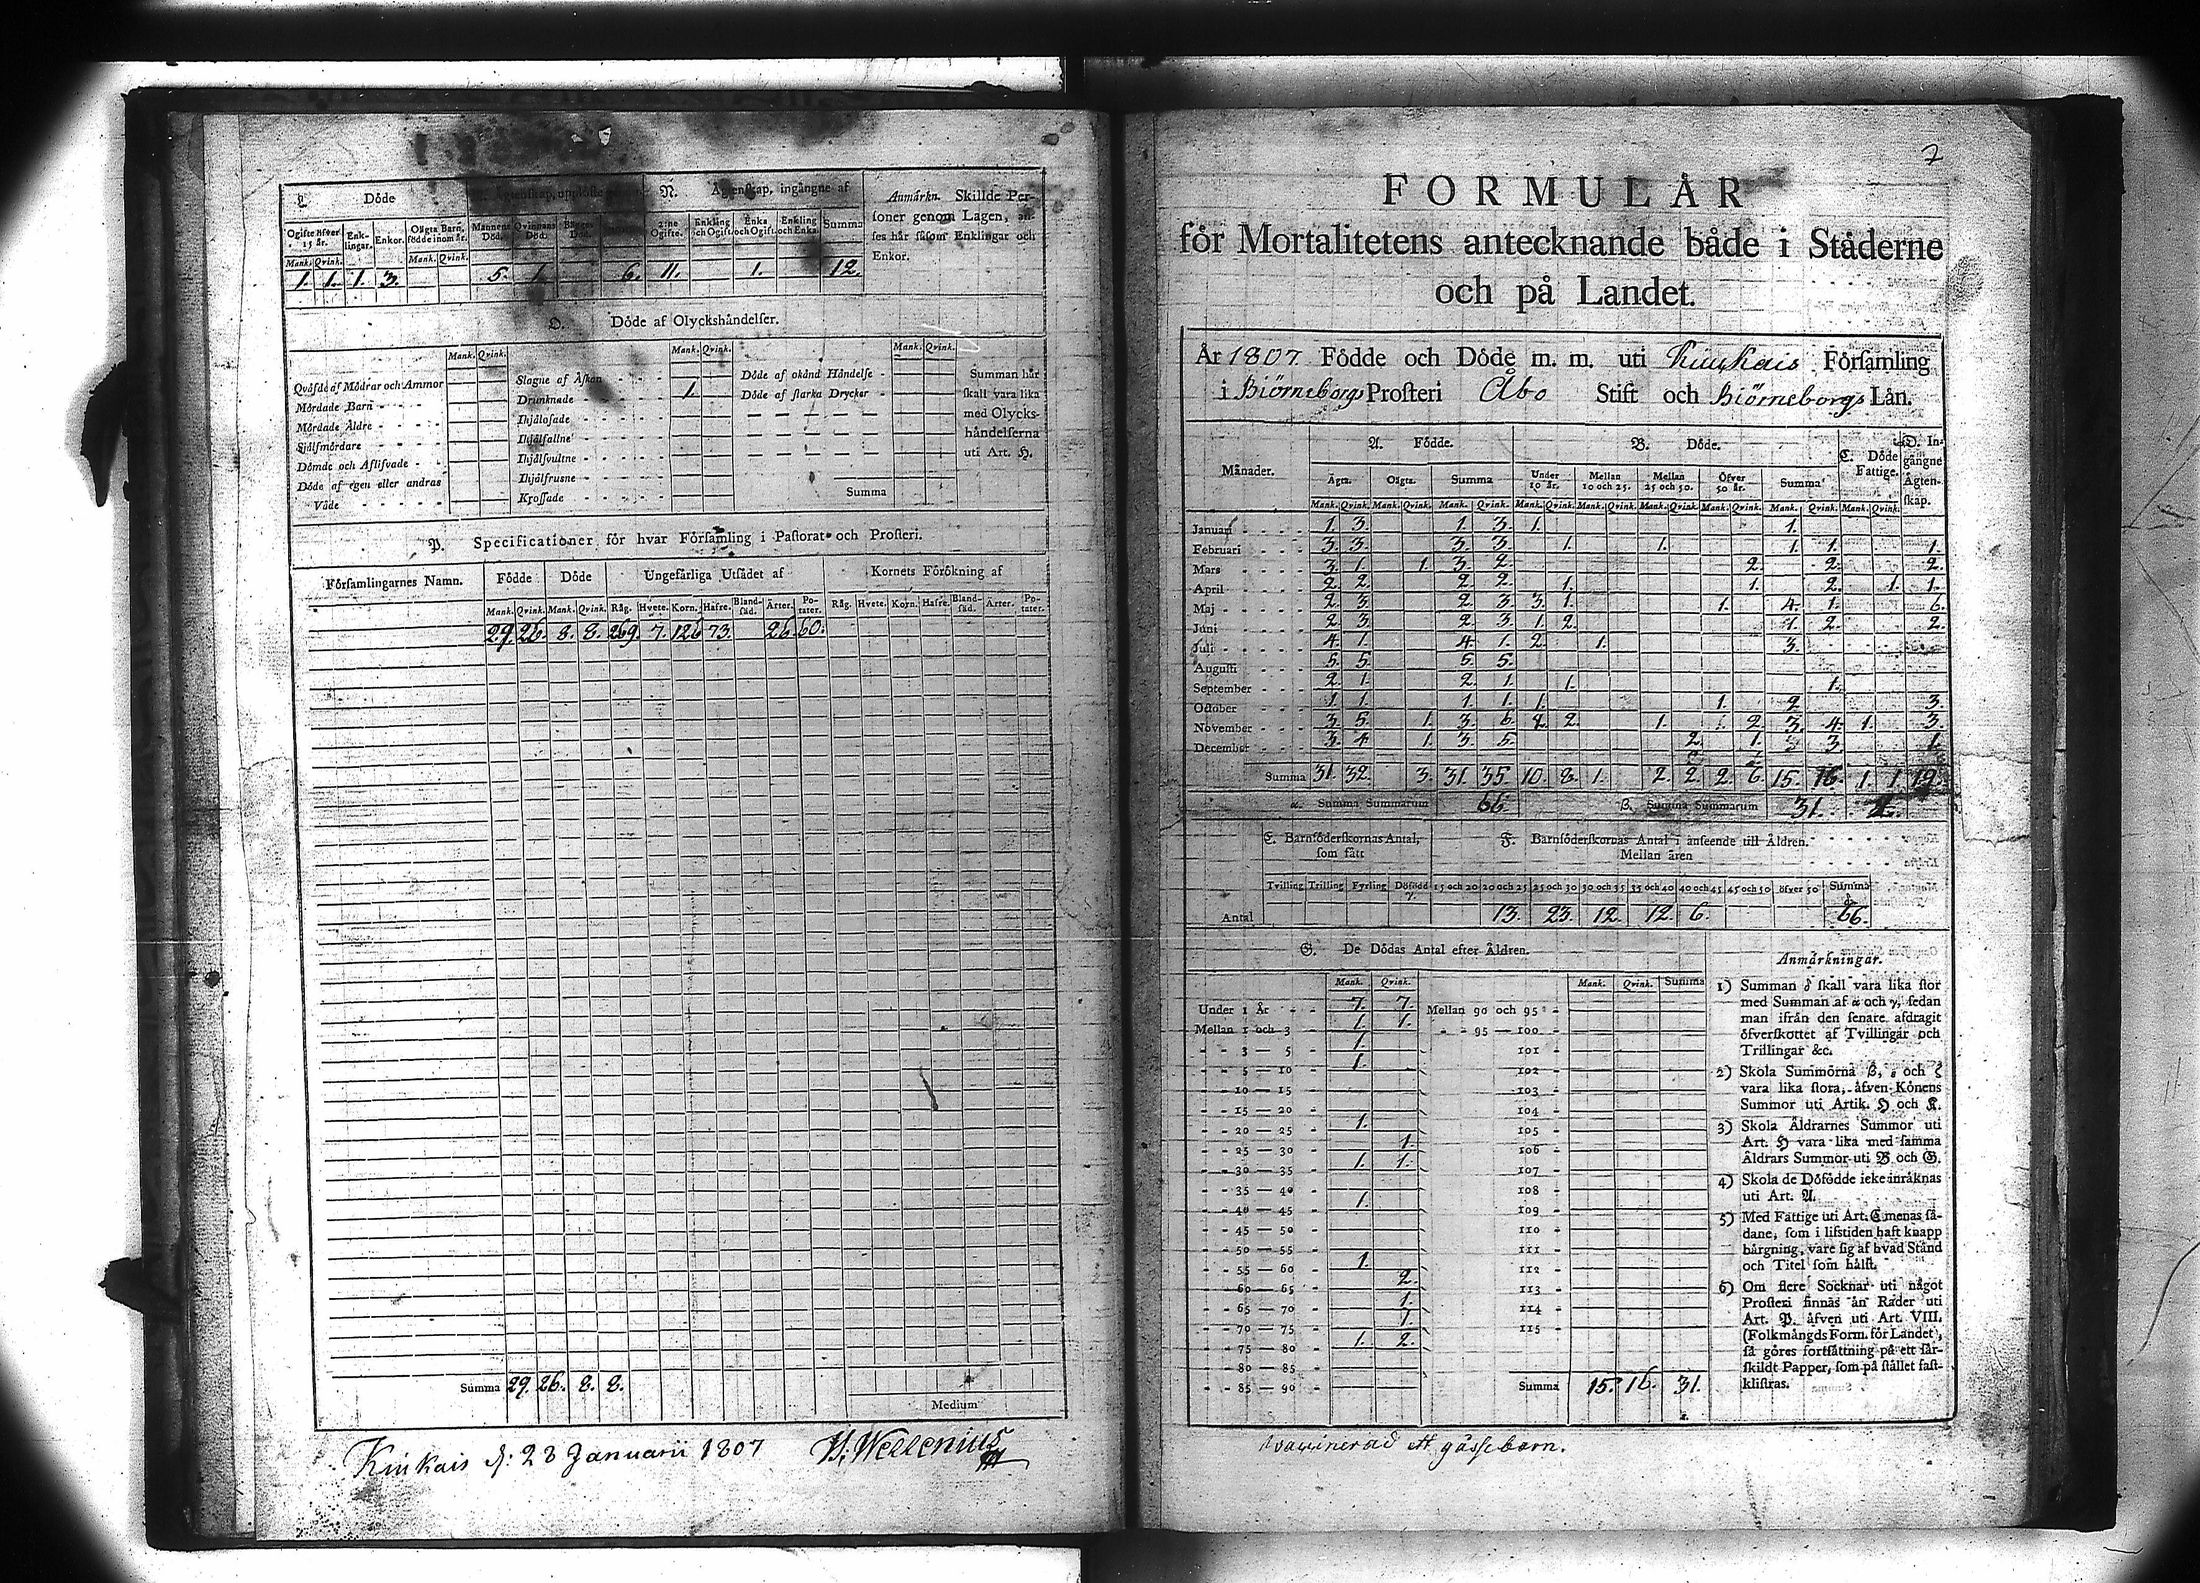 L. Döde
Ägtenskap, uplöste
N. Ägtenskap, ingångne af
Anmärkn. Skillde Per-
soner genom Lagen, an-
ses här såsom Enklingar och
Enkor.
Ogifte öfver 15 år. Enk-lingar. Enkor. Oägta Barn, födde inom år. Mannens Död. Qvinnans Död. Bägges Död. 2:ne Ogifte. Enkling och Ogift. Enka och Ogift. Enkling och Enka. Summa
Mank. Qvink. Mank. Qvink.
1. 1. 1. 3. 5. 1. 6. 11. 1. 12.
O. Döde af Olyckshändelser.
Mank. Qvink. Mank. Qvink. Mank. Qvink.
Qväfde af Mödrar och Ammor
Mördade Barn
Mördade Äldre
Själfmördare
Dömde och Aflifvade
Döde af egen eller andras
Våde
Slagne af Åskan
Drunknade 1.
Ihjälosade
Ihjälfallne
Ihjälsvultne
Ihjälfrusne
Krossade
Döde af okänd Händelse
Döde af starka Drycker
Summa
Summan här
skall vara lika
med Olycks-
händelserna
uti Art. H.
P. Specificationer för hvar Församling i Pastorat och Prosteri.
Församlingarnes Namn. Födde Döde Ungefärliga Utsädet af Kornets Förökning af
Mank. Qvink. Mank. Qvink. Råg. Hvete. Korn. Hafre. Bland-säd. Ärter. Po-tater. Råg. Hvete. Korn. Hafre. Bland-säd. Ärter. Po-tater.
29. 26. 8. 8. 269. 7. 126 73. 26 60.
Summa 29. 26. 8. 8.
Medium
Kiukais d: 28 Januarii 1807 H. Wellenius
7
FORMULÄR
för Mortalitetens antecknande både i Städerne
och på Landet.
År 1807. Födde och Döde m. m. uti Kiukais Församling
i Biörneborgs Prosteri Åbo Stift och Biörneborgs Län.
Månader. A. Födde. B. Döde. C. Döde Fattige. D. In-gångne Ägten-skap.
Ägta. Oägta. Summa Under 10 år. Mellan 10 och 25. Mellan 25 och 50. Öfver 50 år. Summa
Mank. Qvink. Mank. Qvink. Mank. Qvink. Mank. Qvink. Mank. Qvink. Mank. Qvink. Mank. Qvink. Mank. Qvink. Mank. Qvink.
Januari 1. 3. 1. 3. 1. 1.
Februari 3. 3. 3. 3. 1. 1. 1. 1. 1.
Mars 3. 1. 1. 3. 2. 2. 2. 2.
April 2. 2. 2. 2. 1. 1. 2. 1. 1.
Maj 2. 3. 2. 3. 3. 1. 1. 4. 1. 6.
Juni 2. 3. 2. 3. 1. 2. 1. 2. 2.
Juli 4. 1. 4. 1. 2. 1. 3.
Augusti 5. 5. 5. 5.
September 2. 1. 2. 1. 1. 1.
October 1. 1. 1. 1. 1. 1. 2. 3.
November 3. 5. 1. 3. 6. 2. 2. 1. 2. 3. 4. 1. 3.
December 3. 4. 1. 3. 5. 2. 1. 3. 1.
Summa 31. 32. 3. 31. 35 10. 8. 1. 2. 2. 2. 6. 15. 16. 1. 1. 19.
α. Summa Summarum 66. β. Summa Summarum 31. 2.
E. Barnföderskornas Antal, som fått
F. Barnföderskornas Antal i anseende till Åldren.
Mellan åren
Tvilling Trilling Fyrling Dödfödd γ. 15 och 20 20 och 25 25 och 30 30 och 35 35 och 40 40 och 45 45 och 50 öfver 50 Summa δ
Antal 13. 23. 12. 12. 6. 66.
G. De Dödas Antal efter Åldren.
Mank. Qvink. Mank. Qvink. Summa
Under 1 År 7. 7.
Mellan 1 och 3 1. 1.
3 — 5 1.
5 — 10 1.
10 — 15
15 — 20
20 — 25 1.
25 — 30 1.
30 — 35 1. 1.
35 — 40
40 — 45 1.
45 — 50
50 — 55
55 — 60 1.
60 — 65 2.
65 — 70 1.
70 — 75 1.
75 — 80 1. 2.
80 — 85
85 — 90
Mellan 90 och 95
95 — 100
101
102
103
104
105
106
107
108
109
110
111
112
113
114
115
Summa 15. 16. 31.
Anmärkningar.
1) Summan δ skall vara lika stor
med Summan af α och γ, sedan
man ifrån den senare afdragit
öfverskottet af Tvillingar och
Trillingar &c.
2) Skola Summorna β, ε och ζ
vara lika stora, äfven Könens
Summor uti Artik. H och K.
3) Skola Åldrarnes Summor uti
Art. H vara lika med samma
Åldrars Summor uti B och G.
4) Skola de Dödfödde icke inräknas
uti Art. A.
5) Med Fattige uti Art. C menas så-
dane, som i lifstiden haft knapp
bärgning, vare sig af hvad Stånd
och Titel som hälst.
6) Om flere Socknar uti något
Prosteri finnas än Rader uti
Art. P. äfven uti Art. VIII.
(Folkmängds Form. för Landet),
så göres fortsättning på ett sär-
skildt Papper, som på stället fast-
klistras.
Vaccinerad ett gåssebarn.